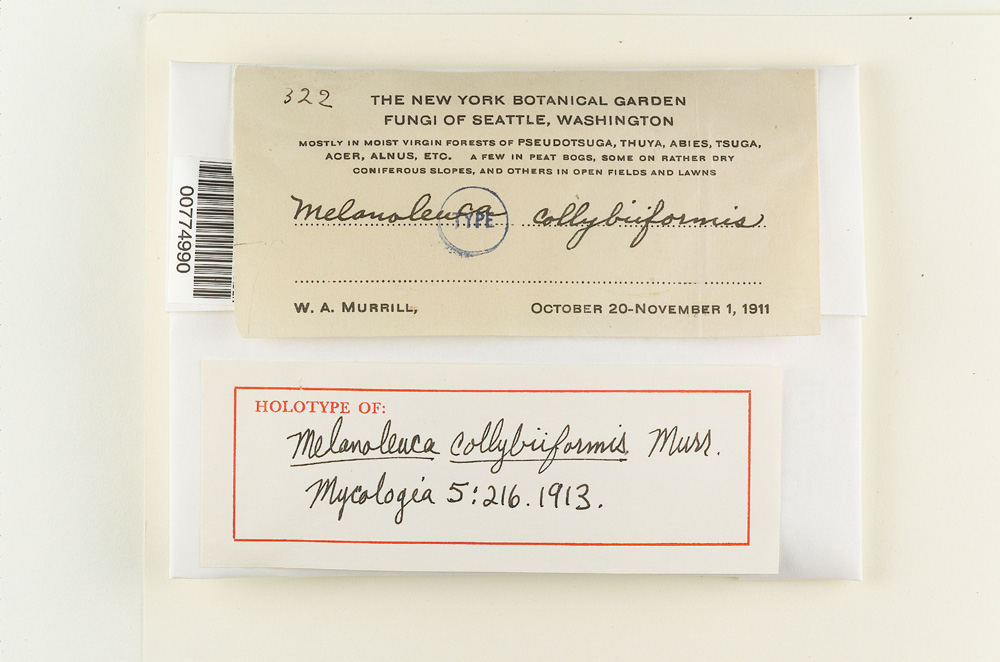 322
THE NEW YORK BOTANICAL GARDEN
FUNGI OF SEATTLE, WASHINGTON
MOSTLY IN MOIST VIRGIN FORESTS OF PSEUDOTSUGA, THUYA, ABIES, TSUGA,
ACER, ALNUS, ETC. A FEW IN PEAT BOGS, SOME ON RATHER DRY
CONIFEROUS SLOPES, AND OTHERS IN OPEN FIELDS AND LAWNS
Melanoleuca collybiiformis
TYPE
W. A. MURRILL, OCTOBER 20-NOVEMBER 1, 1911
00774990
HOLOTYPE OF:
Melanoleuca collybiiformis Murr.
Mycologia 5:216. 1913.